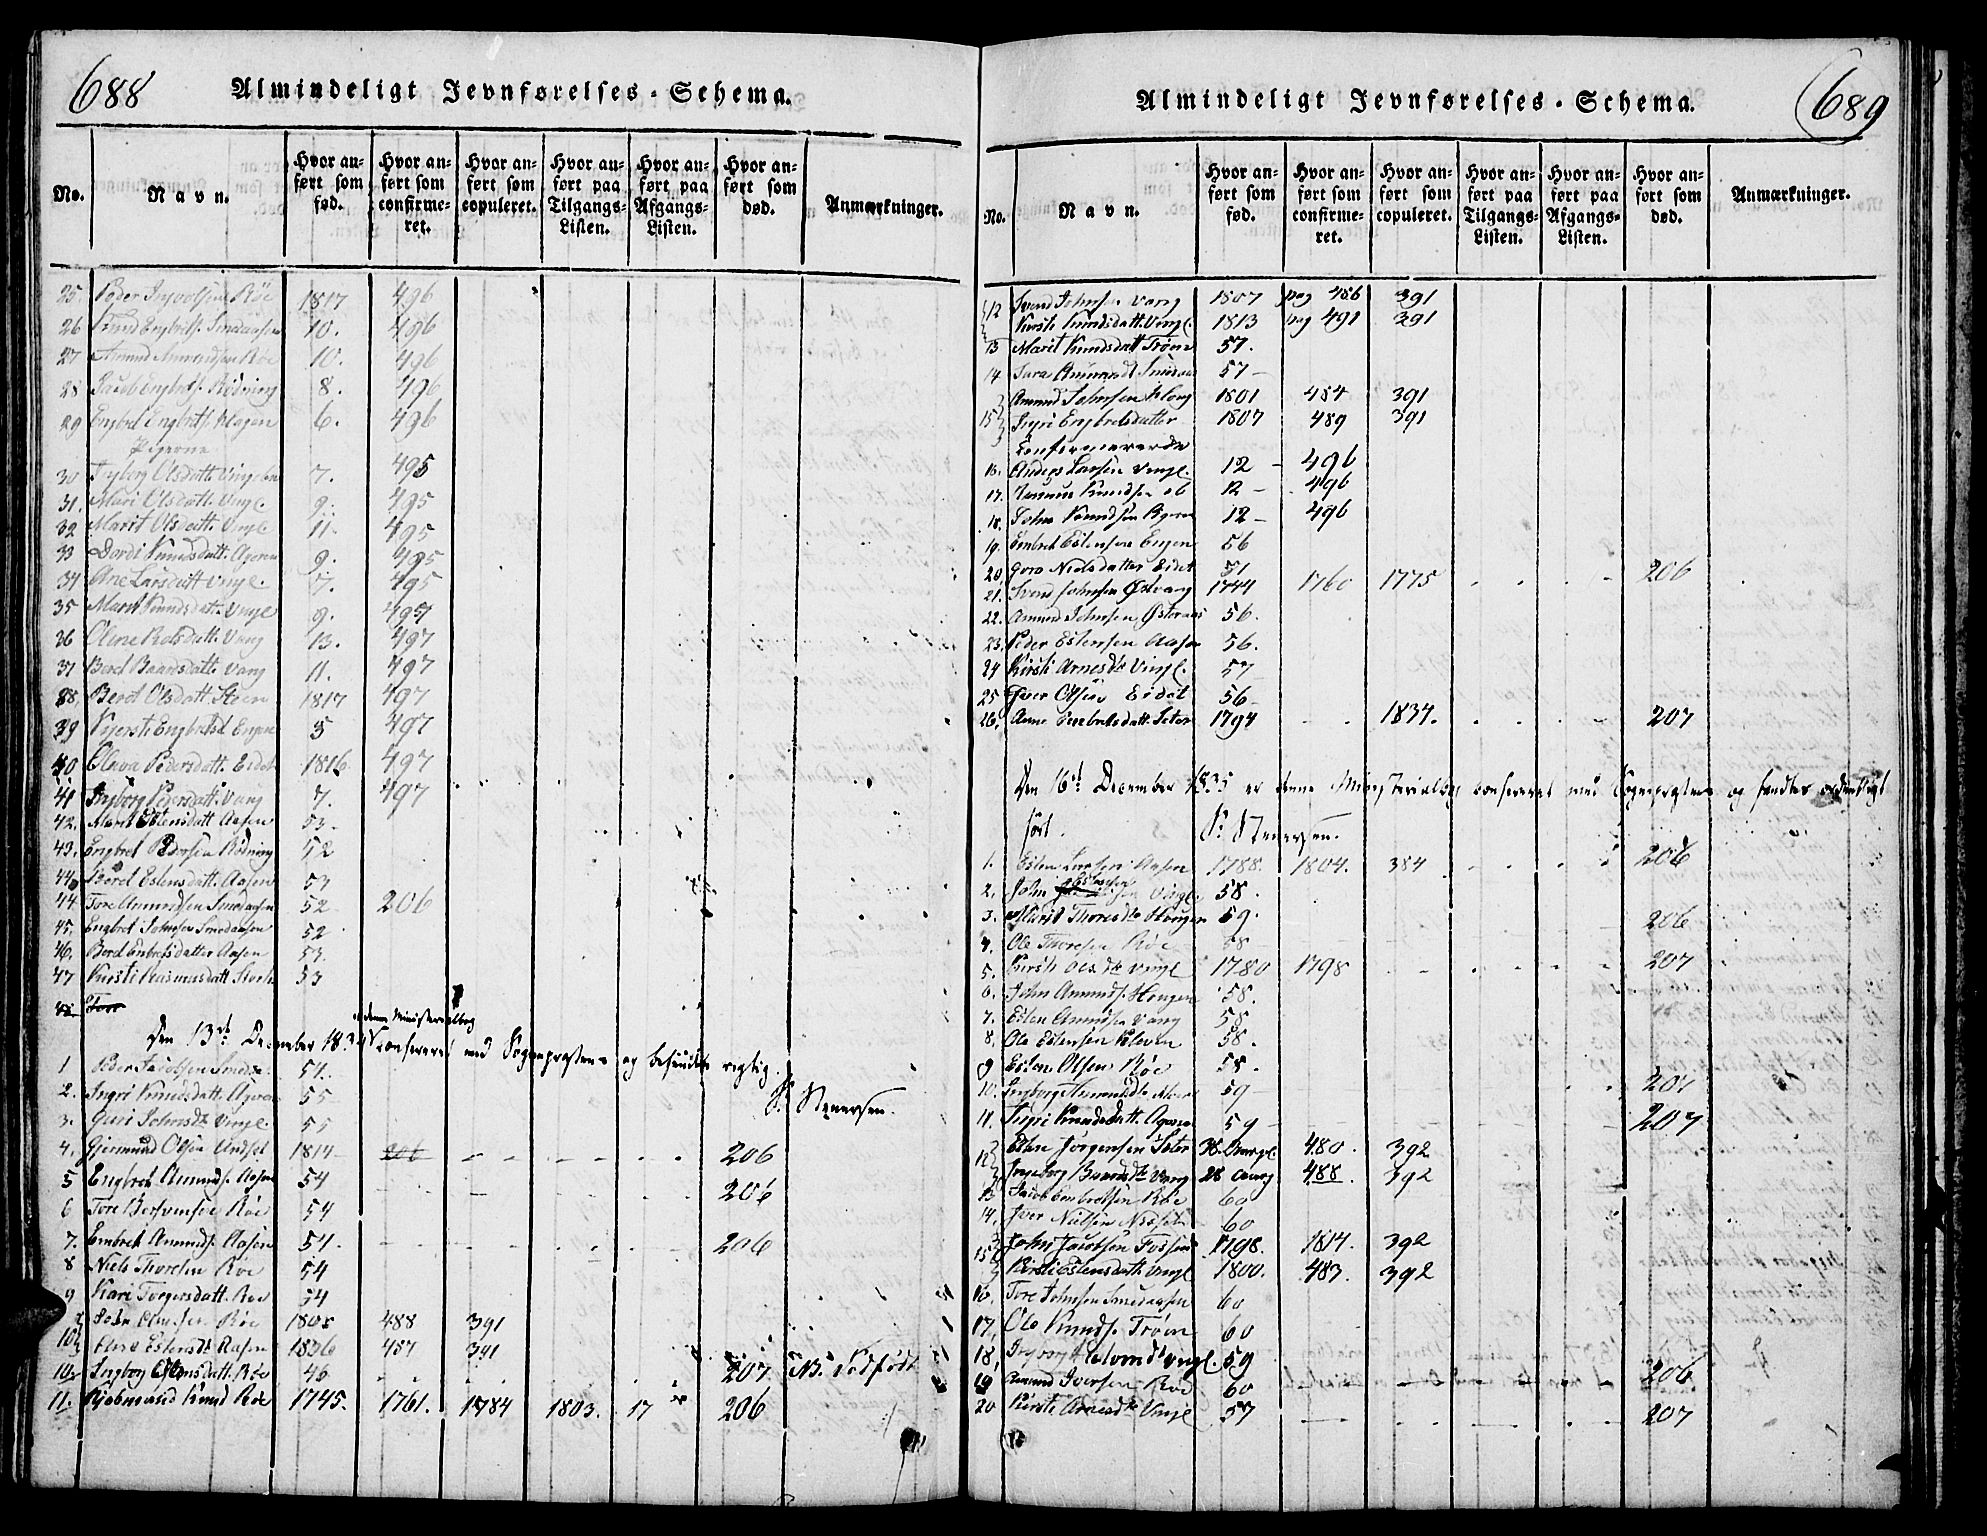 688 Almindeligt Jevnførelses-Schema.
No. Navn. Hvor anført som fød. Hvor anført som confirmeret. Hvor anført som copuleret. Hvor anført paa Tilgangs-Listen. Hvor anført paa Afgangs-Listen. Hvor anført som død. Anmærkninger.
25. Peder Røe 1817 496
26 Knud Engbrets. Smedaasen 10. 496
27 Amund Amundsen Røe 10. 496
28 Jacob Engbrets. Rødning 8. 496
29 Engbret Engbrets. Hagen 6. 496
Pigerne
30 Ingborg Olsdatt. 7. 495
31. Mari Olsdatt. Vingl. 9. 495
32 Marit Olsdatt. Vingl. 11. 495
33 Dordi Knudsdatt. Ageren 9. 495
34 Ane Larsdatt. Vingl. 7. 495
35 Marit Knudsdatt. Vingl 9. 497
36 Oline Vang 13. 497
37 Beret Baardsdatt. Vang 11. 497
38 Beret Olsdatt. Steen 1817 497
39 Kjersti Engbretsd. Engen 5 497
40 Oleva Pedersdatt. Eidet 1816 497
41 Ingborg Pedersdatt. Vang 7. 497
42. Marit Estensdatt. Aasen 53.
43. Engbret Pedersen Rødning 52
44 Beret Estensdatt. Aasen 53
44 Tore Amundsen Smedaasen 52 206
45. Engbret Johnsen Smedaasen 52
46. Beret Embretsdatter Aasen 53.
47 Kirsti Rasmusdatt. 53
48 Tore
Den 13de December 1834 er denne Ministerialbog confereret med Sognepræstens og befunden rigtig.
St. Stenersen.
1 Peder Jacobsen 51.
2. Ingri Knudsdatt. Ageren 55
3. Guri Johnsdr. Vingl. 55
4. Gjermund Olsen 1814 206 206
5 Engbret Amunds. Aasen 54 206
6 Tore Røe 54
7. Embret Amunds. Aasen 54. 206
8 Niels Thoresen Røe 54
9 Kari Torgersdatt. Røe 54
10 John Røe 1808 488 391
Ane Estensdt. Aasen 1806 487 391
10 Ingborg Røe 46 207 NB. Dødfødt
11. Røe 1745. 1761. 1784 1803. 17 206
Almindeligt Jevnførelses-Schema. 689
No. Navn. Hvor anført som fød. Hvor anført som confirmeret. Hvor anført som copuleret. Hvor anført paa Tilgangs-Listen. Hvor anført paa Afgangs-Listen. Hvor anført som død. Anmærkninger.
12 Svend Johnsen Vang 1807 pag 486 391
Kirsti Knudsdatt. Vingl. 1813 pag 491 391
13 Marit Knudsdatt Trøen 57.
14 57
15 Amund Johnsen Houg 1801 484 391
Ingri Engbretsdatter 1807 489 391
Confirmerede
16. Anders Larsen Vingl. 12 496
17. Rasmus Knudsen 12 496
18. John Knudsen Ageren 12 496
19. Embret Estensen Engen 56
20. Goro Nielsdatter Eidet 51 206
21. Svend Johnsen Østvang 1744 1760 1775
22. Amund Johnsen 56.
23. Peder Estensen Aasen 56.
24 Kirsti Arnesdt. Vingl. 57
25 Iver Olsen Eidet 56
26. Anne Embretsdatt. Seter 1794 1834. 207
Den 16de December 1835 er denne Ministerialbog confereret med Sognepræstens og fundtes ordentligt
ført. St. Stenersen.
1. Esten Larsen Aasen 1788. 1804. 384 206
2. John Estensen Vingl. 58.
3. Marit Thoresdt. Hougen 59. 206
4. Ole Thoresen Røe 58
5. Kirsti Olsdt. Vingl 1780 1798 207
6. John Amunds. Hougen 58.
7. Esten Amundsen Vang 58
8. Ole Estensen Kleven 58.
9 Esten Olsen Røe 58.
10. Ingborg Amundsdt. 59 207
11. Ingri Knudsdatt. Ageren 59 207
12 Esten Jørgensen Seter 480. 392
Ingeborg Baardsdt. Vang 488. 392
13 Jacob Embretsen Røe 60
14. Iver Nielsen 60
15 John Jacobsen Fossen 1798. 1814. 392
Kirsti Estensdatt. Vingl 1800. 483. 392
16. Tore Johnsen Smedaasen 60
17. Ole Knuds. Trøen 60
18. Ingborg Vingl. 59
19 Amund Iversen Røe 60 206
20 Kirsti Arnesdt. Vingl 57 207